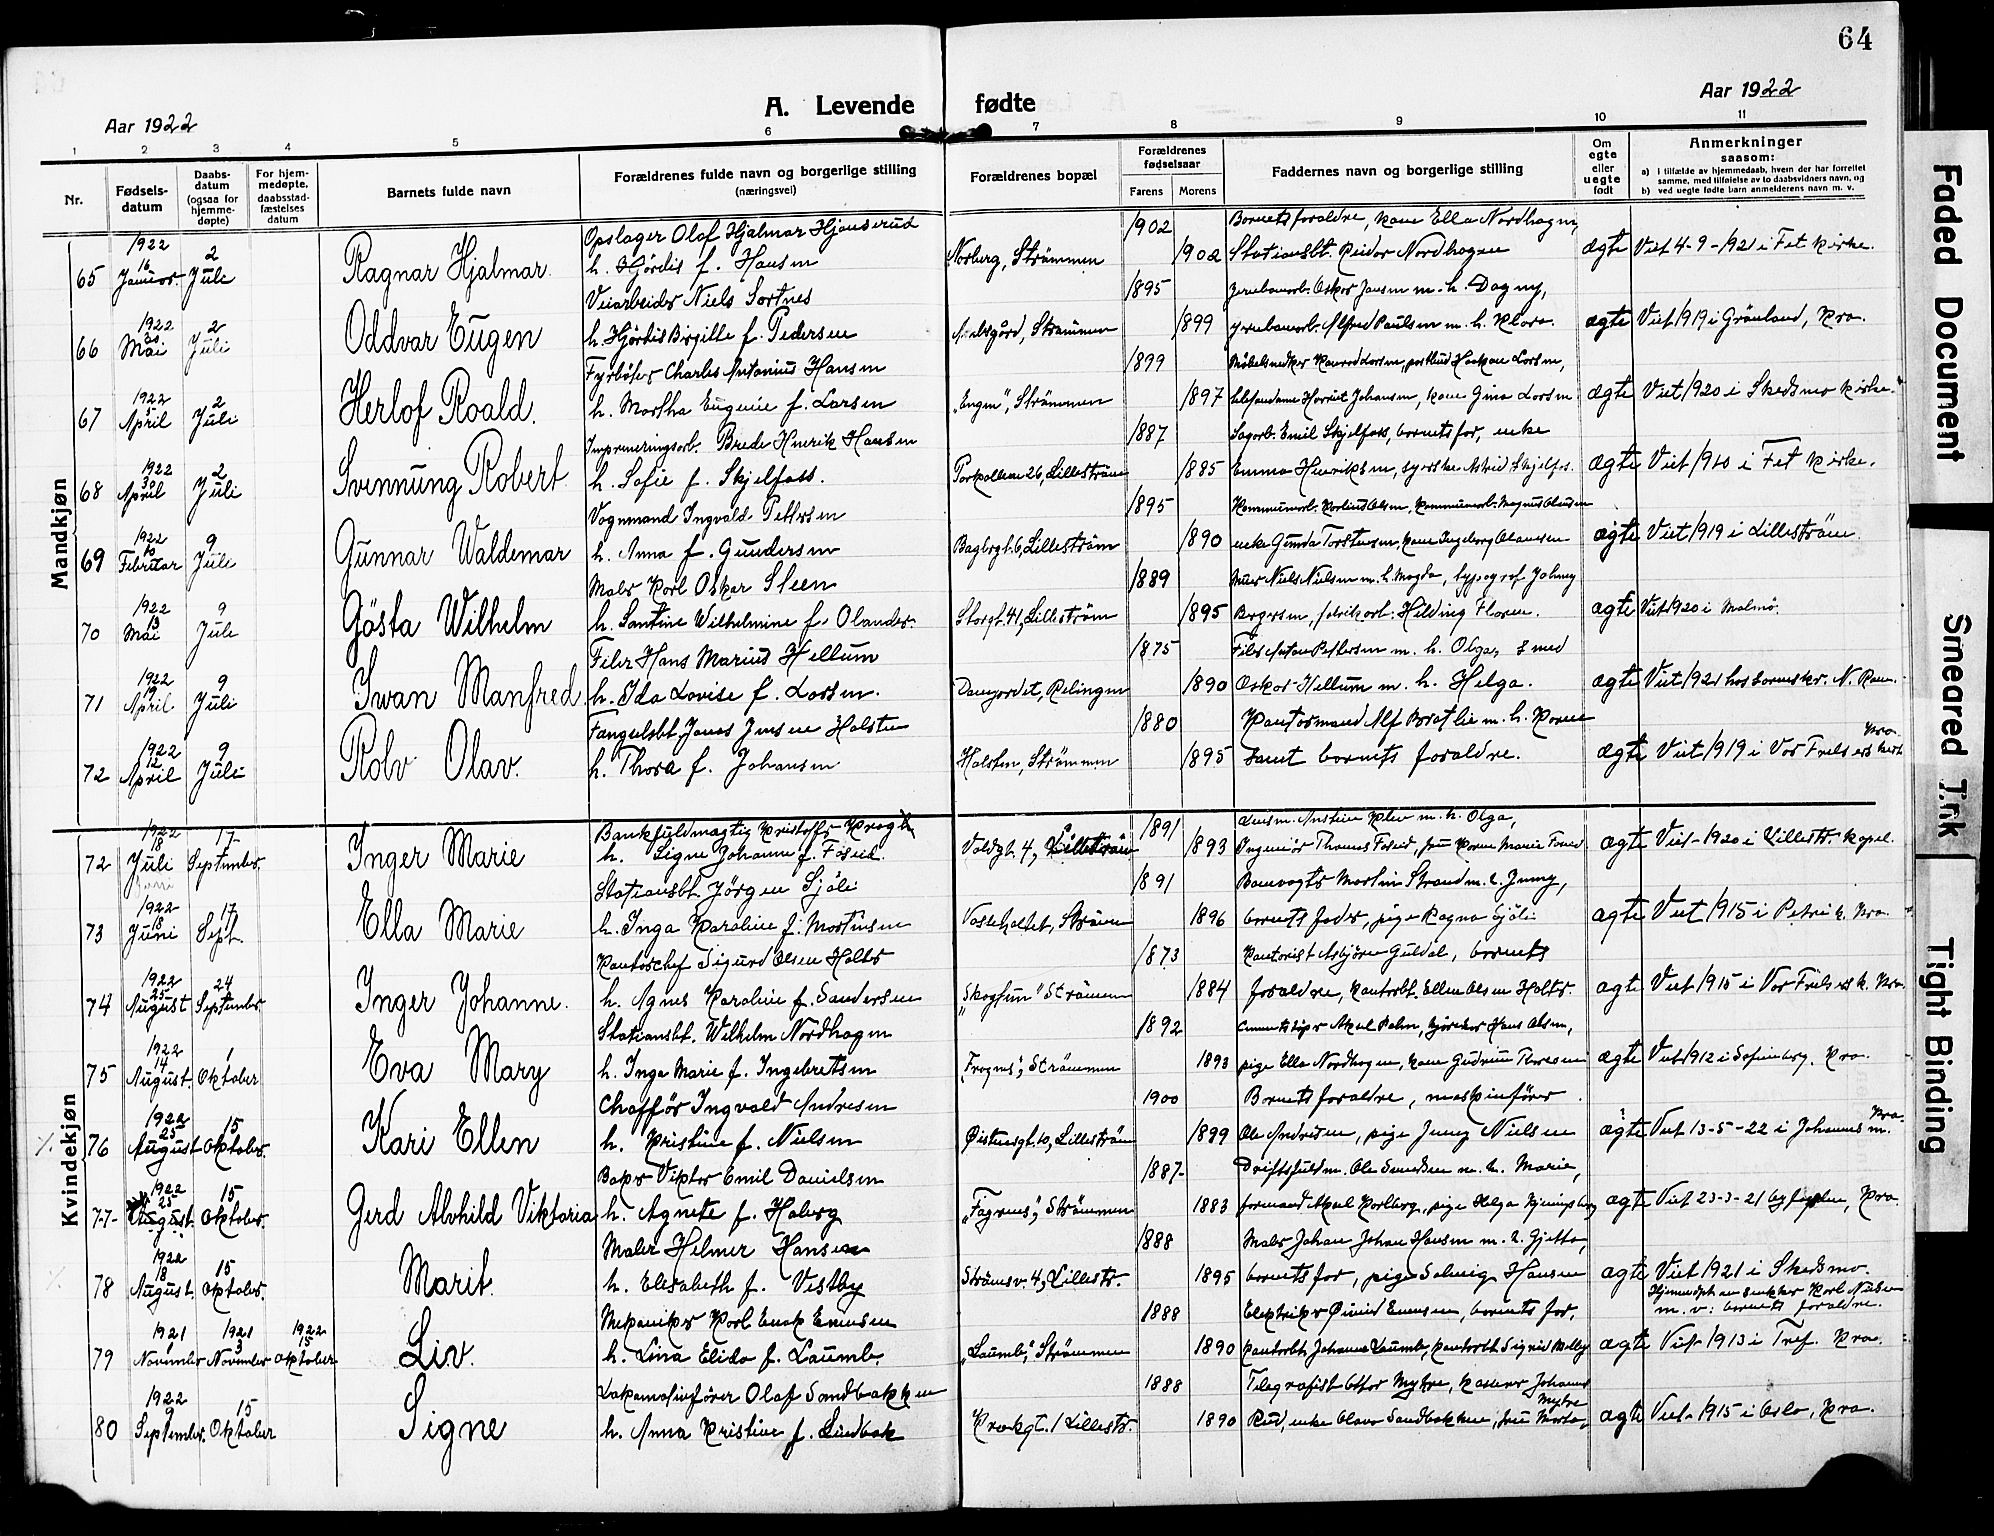 64
Aar 1922
A. Levende fødte
Aar 1922
1 2 3 4 5 6 7 8 9 10 11
Nr.
Fødsels-
datum
Daabs-
datum
(ogsaa for
hjemme-
døpte)
For hjem-
medøpte,
daabsstad-
fæstelses
datum
Barnets fulde navn
Forældrenes fulde navn og borgerlige stilling
(næringsvei)
Forældrenes bopæl
Forældrenes
fødselsaar
Farens Morens
Faddernes navn og borgerlige stilling
Om
egte
eller
uegte
født
Anmerkninger
saasom:
a) i tilfælde av hjemmedaab, hvem der har forrettet
samme, med tilføielse av to daabsvidners navn, og
b) ved uegte fødte barn anmelderens navn m. v.
Mandkjøn
65 1922 16 Januar. 2 Juli Ragnar Hjalmar. Opslager Olaf Hjalmar Hjanserud
h. Hjördis f. Hansen Norberg, Strömmen 1902 1902 Barnets foraldre, kone Ella Nordhagen,
Stationsbt. Reidar Nordhagen ægte Viet 4-9-1921 i Fet kirke.
66 1922 20 Mai 2 Juli Oddvar Eugen Veiarbeider Niels Sortnes
h. Hjördis Birgitte f. Pedersen Strømmen 1895 1899 Jernbanearb. Oskar Jansen m. h. Dagny,
jernbanearb. Alfred Paulsen m. h. Klara. ægte Viet 1919 i Grönland, Kra.
67 1922 5 April 2 Juli Herlof Roald. Fyrböter Charles Antonius Hansen
h. Martha Eugenie f. Larsen "Engen", Strömmen 1899 1897 Larsen,
Harriet Johansen, kone Gina Larsen ægte Viet 1920 i Skedsmo kirke.
68 1922 30 April 2 Juli Svennung Robert Impregneringsarb. Brede Henrik Hansen
h. Sofie f. Skjelfoss. Torvalleen 26, Lilleström 1887 1885 Sagarb. Emil Skjelfoss, barnets far, enke
Emma Henriksen, syerske Astrid Skjelfos. ægte Viet 1910 i Fet kirke.
69 1922 10 Februar 9 Juli Gunnar Waldemar Vognmand Ingvald Pettersen
h. Anna f. Gundersen Bagergt. 6, Lilleström 1895 1890 Kommunearb. Olsen, kommunearb. Magnus Olausen
enke Gunda Torstensen, kone Ingeborg Olaussen ægte Viet 1919 i Lilleström.
70 1922 13 Mai 9 Juli Gösta Wilhelm Maler Karl Oskar Steen
h. Santine Wilhelmine f. Olander. Storgt. 41, Lilleström 1889 1895 Murer Niels Nielsen m. h. Magda, typograf Johnny
Bergersen, fabrikarb. Hilding Floren. ægte Viet 1920 i Malmö.
71 1922 19 April 9 Juli Iwan Manfred. Filer Hans Marius Hellum
h. Ida Lovise f. Larsen. Damjordet, Relingen 1875 1890 Filer Anton Pettersen m. h. Olga, smed
Oskar Hellum m. h. Helga. ægte Viet 1921 hos sorenskr. N. Rom.
72 1922 12 April 9 Juli Rolv Olav. Fængselsbt. Jonas Jensen Holsten
h. Thora f. Johansen Holsten, Strömmen 1880 1895 Kontormand Alf Bratlie m. h. Karen
samt barnets foraldre. ægte Viet 1919 i Vor Frelsers kirke Kra.
Kvindekjøn
72 1922 18 Juli 17 September. Inger Marie Bankfuldmægtig Kristoffer Krogh
h. Signe Johanne f. Foseid. Voldgt. 4, Lilleström 1891 1893 Lensm. m. h. Olga,
Ingeniör Thomas Foseid, fru Karen Marie Foseid ægte Viet 1920 i Lillestr. kapel.
73 1922 18 Juni 17 Sept. Ella Marie Stationsbt. Jörgen Sjöli
h. Inga Karoline f. Mortensen Strömmen 1891 1896 Banevogter Martin Strand m. h. Jenny,
barnets fader, pige Ragna Sjöli ægte Viet 1915 i Petri k. Kra.
74 1922 25 August 24 September Inger Johanne. Kontorchef Sigurd Olsen Holter
h. Agnes Karoline f. Sandersen "Skoghim" Strömmen 1873 1884 Kontorist Asbjörn Guldal, barnets
foraldre, kontorbt. Ellen Olsen Holter. ægte Viet 1915 i Vor Frelsers k. Kra.
75 1922 14 August 1 Oktober Eva Mary Stationsbt. Wilhelm Nordhagen
h. Inga Marie f. Ingebretsen "Frognes", Strömmen 1892 1893 Aksel Palm, Hans Olsen,
pige Ella Nordhagen, kone Gudrun Thoresen ægte Viet 1912 i Sofienberg. Kra.
76 1922 25 August 15 Oktober. Kari Ellen Chafför Ingvald Andresen
h. Kristine f. Nielsen Østensgt. 10, Lilleström 1900 1899 Barnets foraldre, maskinförer
Ole Andresen, pige Jenny Nielsen ægte Viet 13-5-22 i Johannes m. Kra.
77 1922 25 August 15 Oktober. Gerd Alvhild Viktoria Baker Viktor Emil Danielsen
h. Agnete f. Hoberg "Fagernes", Strömmen 1887 1883 Driftsfuldm. Ole Svendsen m. h. Marie,
formand Aksel Karlberg, pige Helga ægte Viet 23-3-21 byfogden, Kra.
78 1922 18 August. 15 Oktober. Marit. Maler Helmer Hansen
h. Elisabeth f. Vestby Strömsv. 4, Lillestr. 1888 1895 Maler Johan Johan Hansen m. h. Gjetta,
barnets far, pige Solveig Hansen ægte Viet 1921 i Skedsmo.
79 1921 1 November 1921 3 November 1922 15 Oktober Liv. Mekaniker Karl Enok Evensen
h. Lina Elida f. Laumb. "Laumb", Strömmen 1888 1890 Elektriker Øivind Evensen, barnets far,
kontorbt. Johanne Laumb, kontorbt. Sigrid Melby ægte Hjemmedøpt av enkker Karl Nielsen
m. v: barnets foraldre.
Viet 1913 i Tref. Kra.
80 1922 5 September. 15 Oktober Signe Lokomotivförer Olaf Sandbakken
h. Anna Kristine f. Lindbak Parkgt. 1 Lillestr. 1888 1890 Telegrafist Ottar Myhre, kasserer Johannes
Rud, enke Olava Sandbakken, fru Marta Myhre, ægte Viet 1915 i Oslo, Kra.
Faded Document
Smeared Ink
Tight Binding